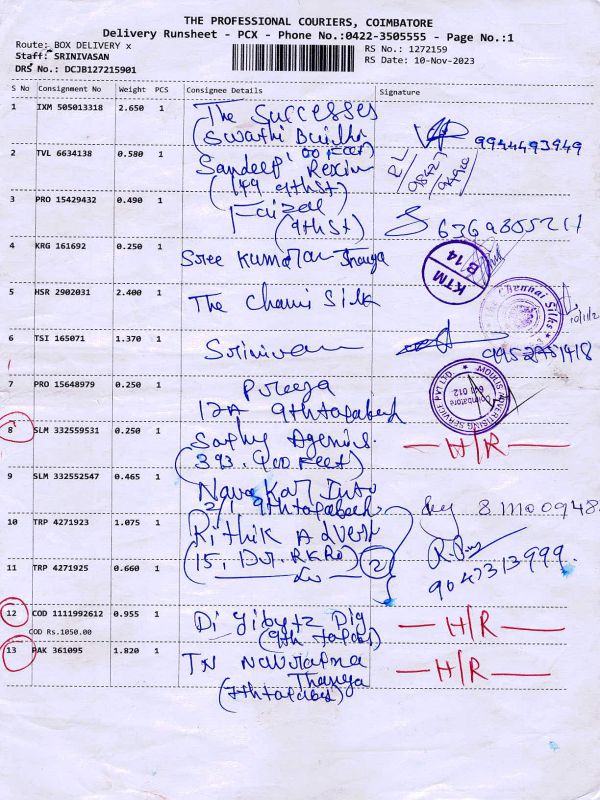 THE PROFESSIONAL COURIERS, COIMBATORE
Delivery Runsheet - PCX - Phone No.:0422-3505555 - Page No.:1
Route: BOX DELIVERY x
Staff: SRINIVASAN
DRS No.: DCJB127215901
RS No.: 1272159
RS Date: 10-Nov-2023
S No Consignment No Weight PCS Consignee Details Signature
1 IXM 505013318 2.650 1 The Successes
(Swathi Builder 9944493949
100 Feet)
2 TVL 6634138 0.580 1 Sandeep Rexin
(149 9thSt)
3 PRO 15429432 0.490 1 Faizal
(9thSt)
4 KRG 161692 0.250 1 Sree Kumaran Thanga
KTM
B 14
5 HSR 2902031 2.400 1 The Chennai Silk
Chennai Silks
10/11/2
6 TSI 165071 1.370 1 Srinivasan
7 PRO 15648979 0.250 1
12A 9thtatabad
MOVIUS ADVERTISING SERVICE PVT LTD.
Coimbatore
641 012
8 SLM 332559531 0.250 1 Sathy Agencies. H/R
(393. 400 Feet)
9 SLM 332552547 0.465 1 Nava Kar
2/1. 9thtatabad
10 TRP 4271923 1.075 1 Rithik Advert
(15, 1Dr. RKRd) 2
11 TRP 4271925 0.660 1 9047313999.
12 COD 1111992612 0.955 1 H/R
COD Rs.1050.00 (9th tatabad)
13 PAK 361095 1.820 1 TN Navratna H/R
Thanga
(7thtatabad)